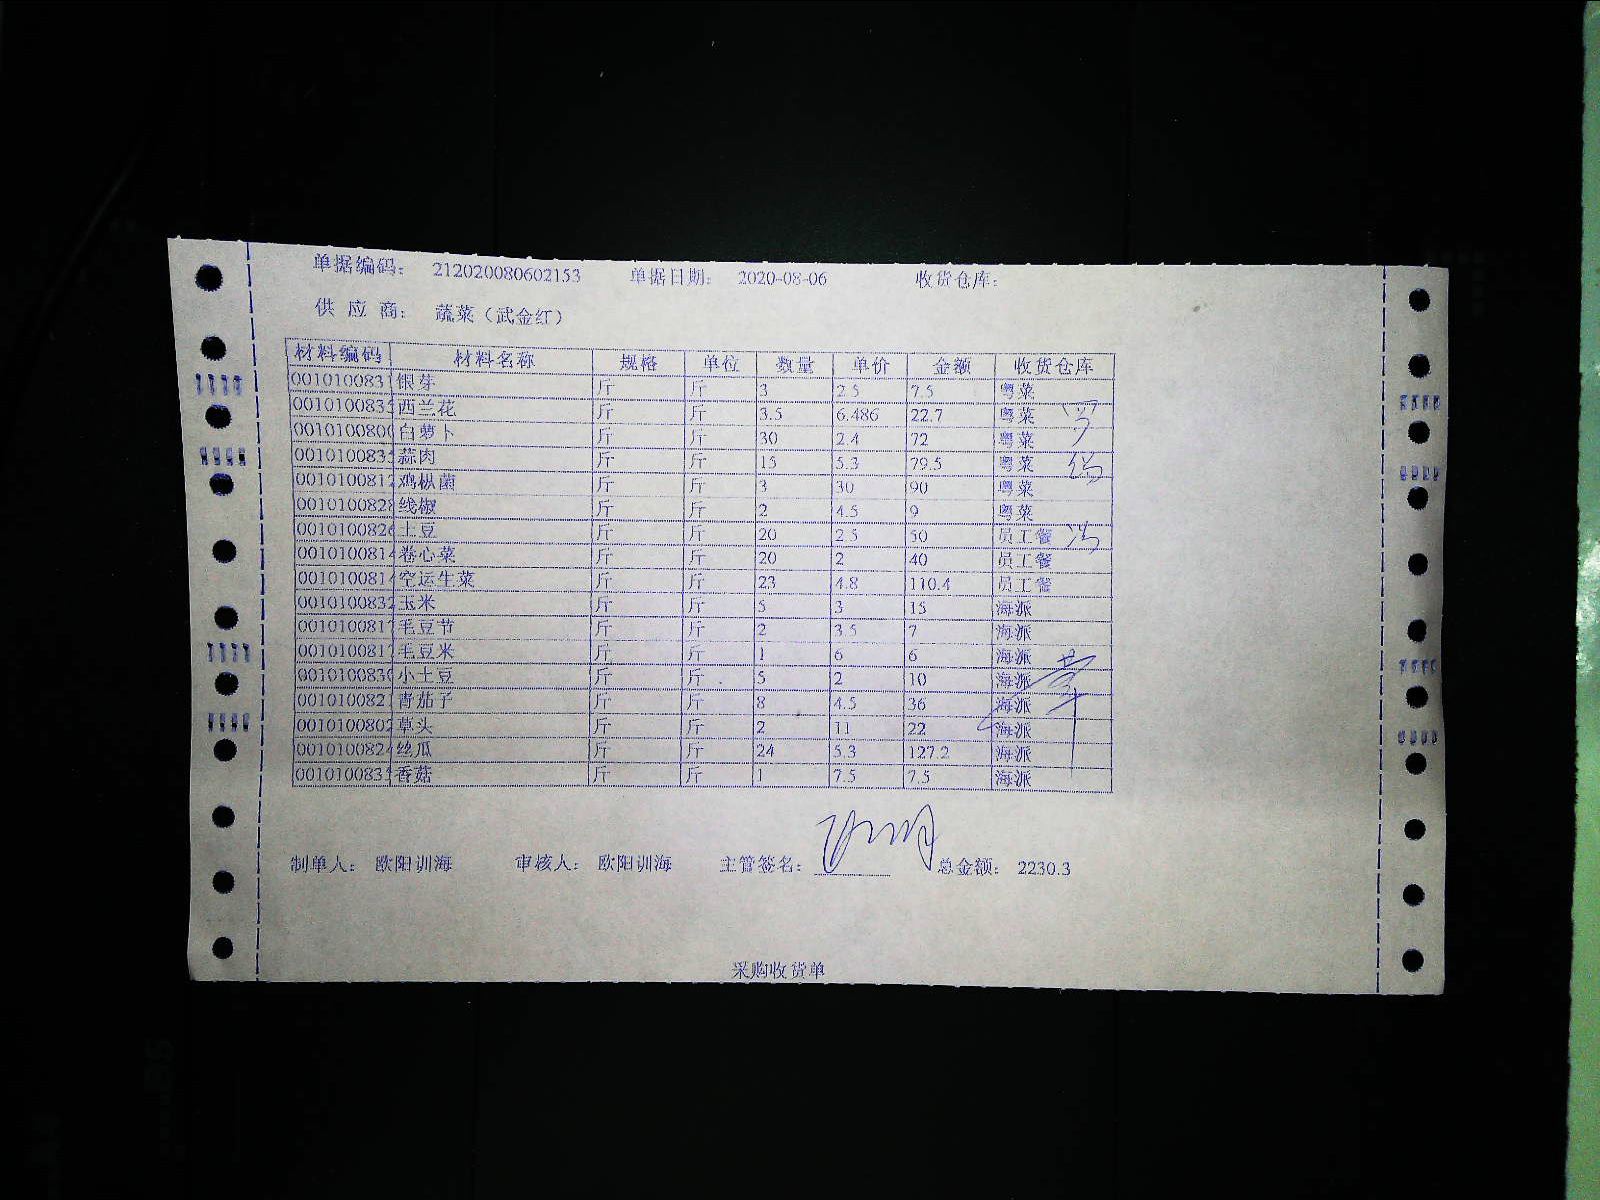 单据编码： 212020080602153 单据日期： 2020-08-06 收货仓库：
供 应 商： 蔬菜（武金红）
材料编码 材料名称 规格 单位 数量 单价 金额 收货仓库
001010083 银芽 斤 斤 3 2.5 7.5 粤菜
001010083 西兰花 斤 斤 3.5 6.486 22.7 粤菜
001010080 白萝卜 斤 斤 30 2.4 72 粤菜
001010083 蒜肉 斤 斤 15 5.3 79.5 粤菜
001010081 鸡枞菌 斤 斤 3 30 90 粤菜
001010082 线椒 斤 斤 2 4.5 9 粤菜
001010082 土豆 斤 斤 20 2.5 50 员工餐
001010081 卷心菜 斤 斤 20 2 40 员工餐
001010081 空运生菜 斤 斤 23 4.8 110.4 员工餐
001010083 玉米 斤 斤 5 3 15 海派
001010081 毛豆节 斤 斤 2 3.5 7 海派
001010081 毛豆米 斤 斤 1 6 6 海派
001010083 小土豆 斤 斤 5 2 10 海派
001010082 青茄子 斤 斤 8 4.5 36 海派
001010080 草头 斤 斤 2 11 22 海派
001010082 丝瓜 斤 斤 24 5.3 127.2 海派
001010083 香菇 斤 斤 1 7.5 7.5 海派
制单人： 欧阳训海 审核人： 欧阳训海 主管签名： 总金额： 2230.3
采购收货单